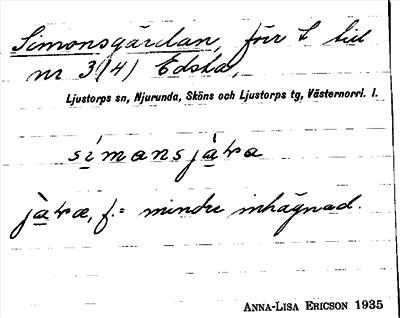 Simonsgärdan, förr L till
nr 3(4) Edsta,
Ljustorps sn, Njurunda, Sköns och Ljustorps tg, Västernorrl. l.
símansjàʳa
jàʳa, f. = mindre inhägnad.
ANNA-LISA ERICSON 1935